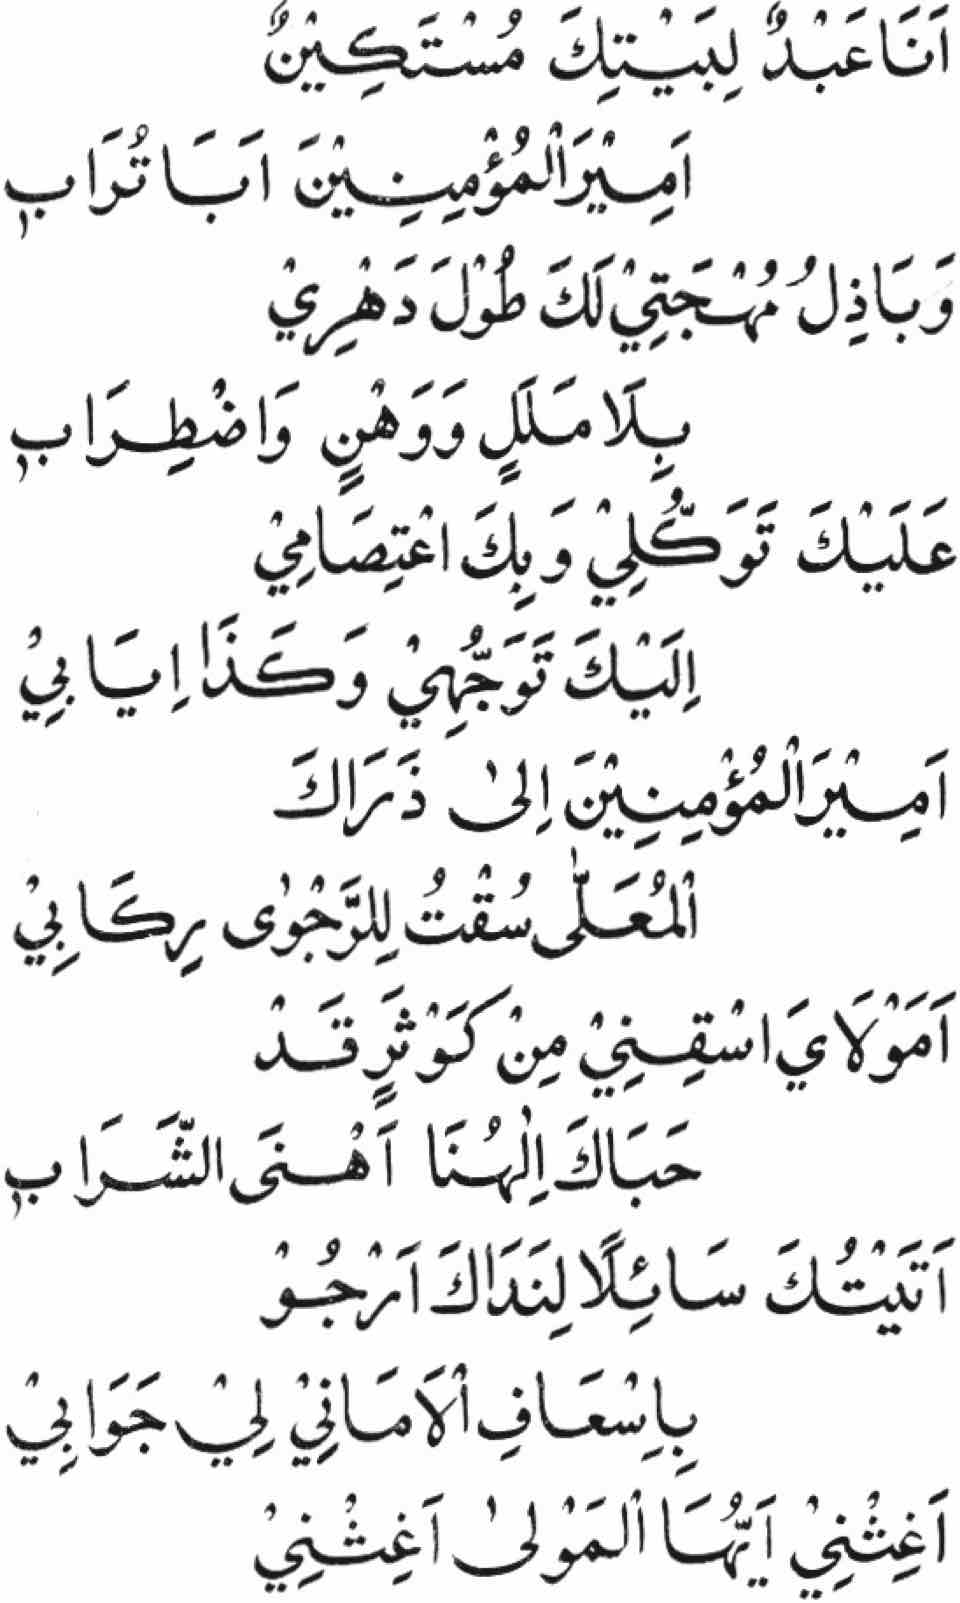 اَنَا عَبْدٌ لِبَيْتِكَ مُسْتَكِيْنٌ
اَمِيْرَ الْمُؤْمِنِيْنَ اَبَا تُرَابٖ
وَبَاذِلُ مُهْجَتِيْ لَكَ طُوْلَ دَهْرِيْ
بِلَا مَلَلٍ وَوَهْنٍ وَاضْطِرَابٖ
عَلَيْكَ تَوَكُّلِيْ وَبِكَ اعْتِصَامِيْ
اِلَيْكَ تَوَجُّهِيْ وَكَذَا اِيَابِيْ
اَمِيْرَ الْمُؤْمِنِيْنَ اِلٰى ذَرَاكَ
الْمُعَلّٰى سُقْتُ لِلرَّجْوٰى رِكَابِيْ
اَمَوْلَايَ اسْقِنِيْ مِنْ كَوْثَرٍ قَدْ
حَبَاكَ اِلٰهُنَا اَهْنَى الشَّرَابٖ
اَتَيْتُكَ سَائِلًا لِنَدَاكَ اَرْجُوْ
بِاِسْعَافِ الْاَمَانِيْ لِيْ جَوَابِيْ
اَغِثْنِيْ اَيُّهَا الْمَوْلٰى اَغِثْنِيْ